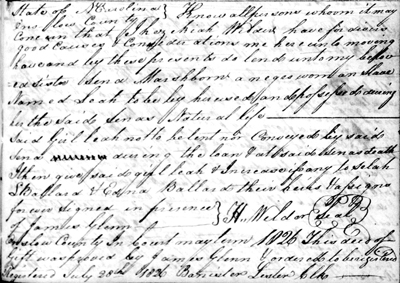 State of N Carolina
Onslow County } Know all persons whom it may
Concern that I Hezekiah Wilder have for divers
good Causes & Considerations me hereunto moving
have and by these presents do lend unto my belov
red sister Sena Marshborn a negro woman slave
Named Leah to be by her used and possessed during
to the said Senas Natural life
Said Girl Leah not to be lent nor Conveyed by said
Sena during the loan & at said Senas death
I then give said girl Leah & Increase if any to Selah
Ballard & Edna Ballard their heirs & assigns
forever signed in presence } H. Wilder seal
J James Glenn
Onslow County In Court may term 1826 This deed of
gift was proved by James Glenn & ordered to be registered
Registered July 28th 1826 Bannister Lester Clk